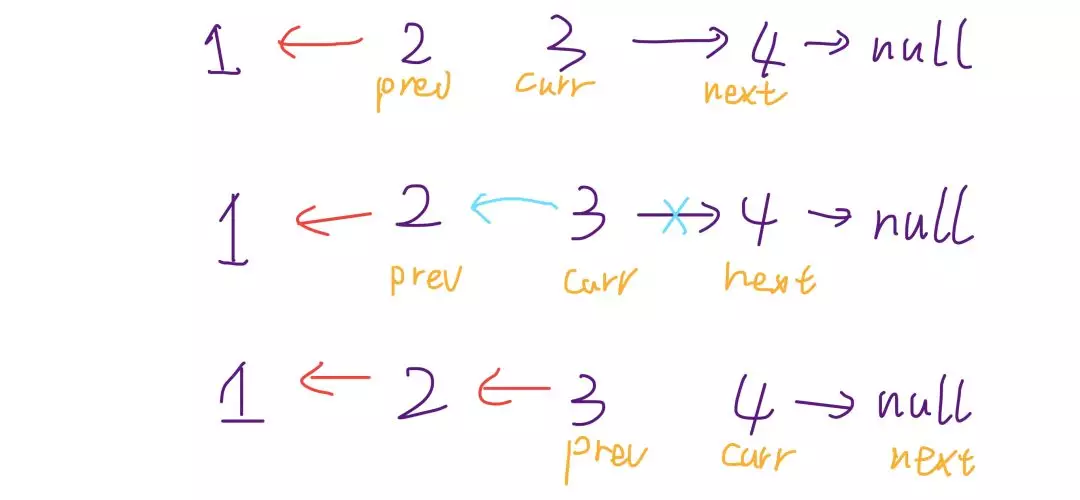 1 ← 2 3 → 4 → null
prev curr next
1 ← 2 ← 3 → 4 → null
prev curr next
1 ← 2 ← 3 4 → null
prev curr next